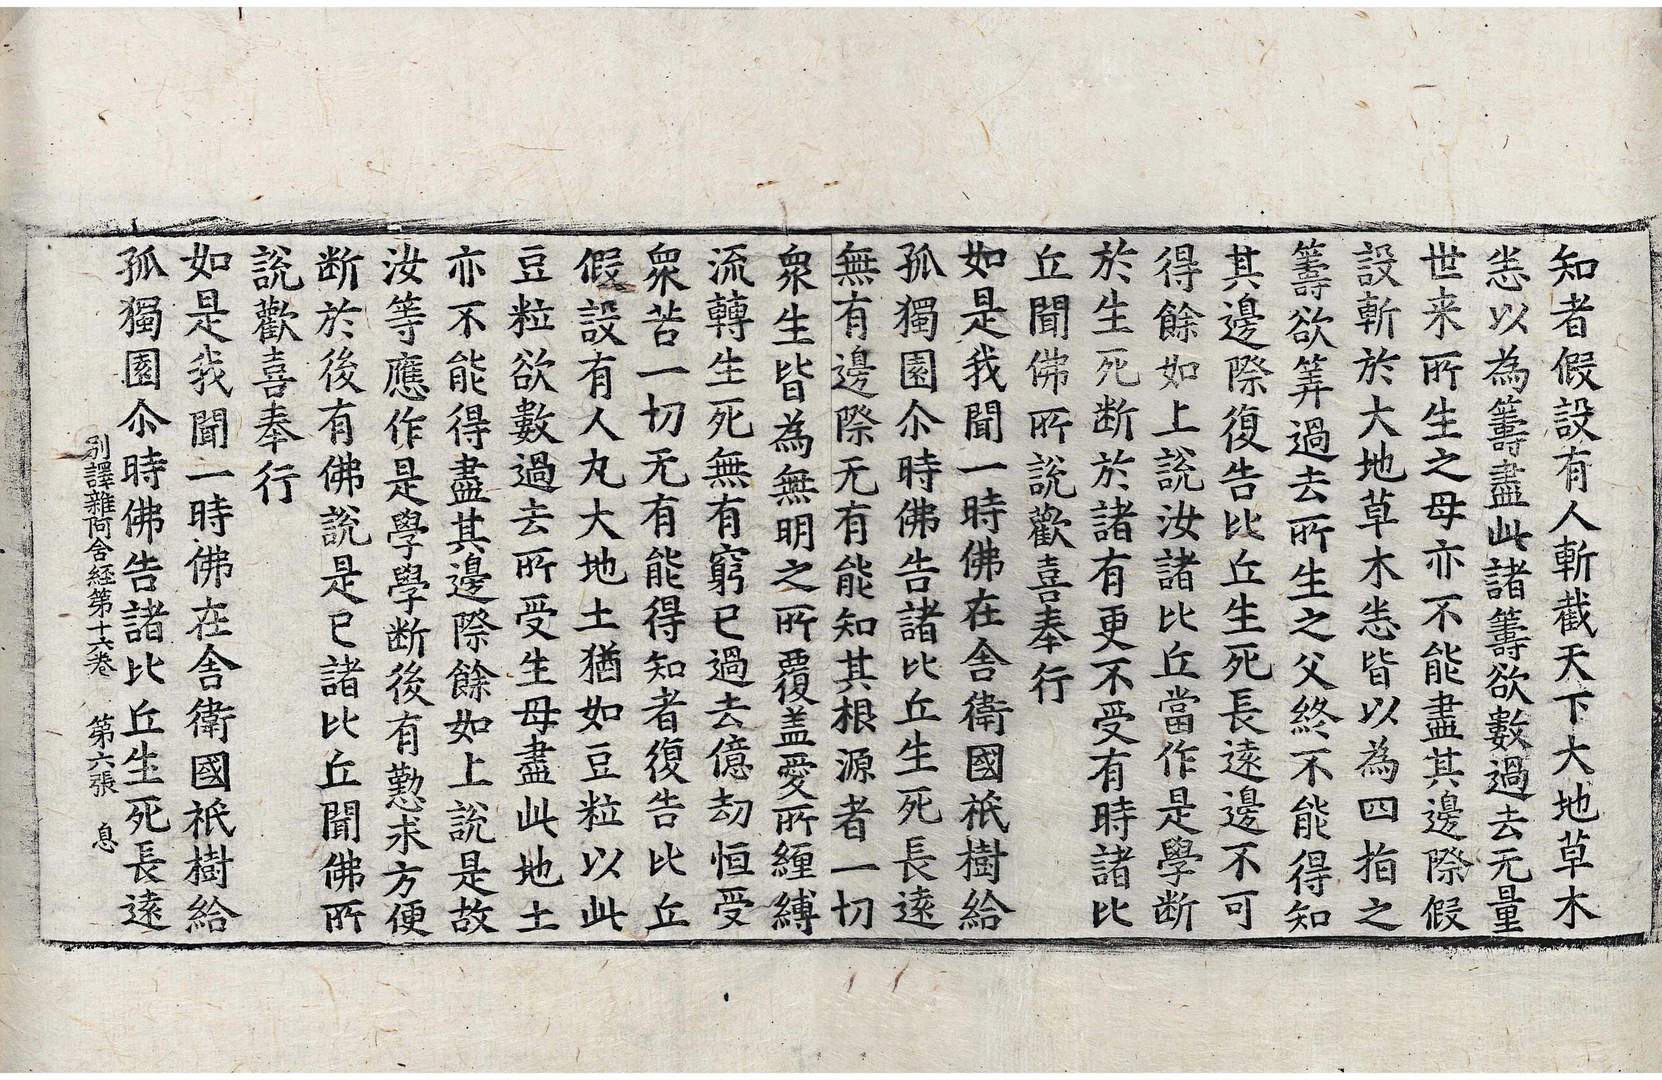 知者假設有人斬截天下大地草木
恙以為籌盡此諸籌欲數過去无量
世来所生之母亦不能盡其邊際假
設斬於大地草木恙皆以為四指之
籌欲筭過去所生之父終不能得知
其邊際復告比丘生死長遠邊不可
得餘如上說汝諸比丘當作是學断
於生死断於諸有更不受有時諸比
丘聞佛所說歡喜奉行
如是我聞一時佛在舍衛國祇樹給
孤獨園尒時佛告諸比丘生死長遠
無有邊際无有能知其根源者一切
衆生皆為無明之所覆盖愛所纏縛
流轉生死無有窮已過去億劫恒受
衆苦一切无有能得知者復告比丘
假設有人丸大地土猶如豆粒以此
豆粒欲數過去所受生母盡此地土
亦不能得盡其邊際餘如上說是故
汝等應作是學學断後有懃求方便
断於後有佛說是已諸比丘聞佛所
說歡喜奉行
如是我聞一時佛在舍衛國祇樹給
孤獨園尒時佛告諸比丘生死長遠
別譯雜阿含経第十六卷 第六張 息